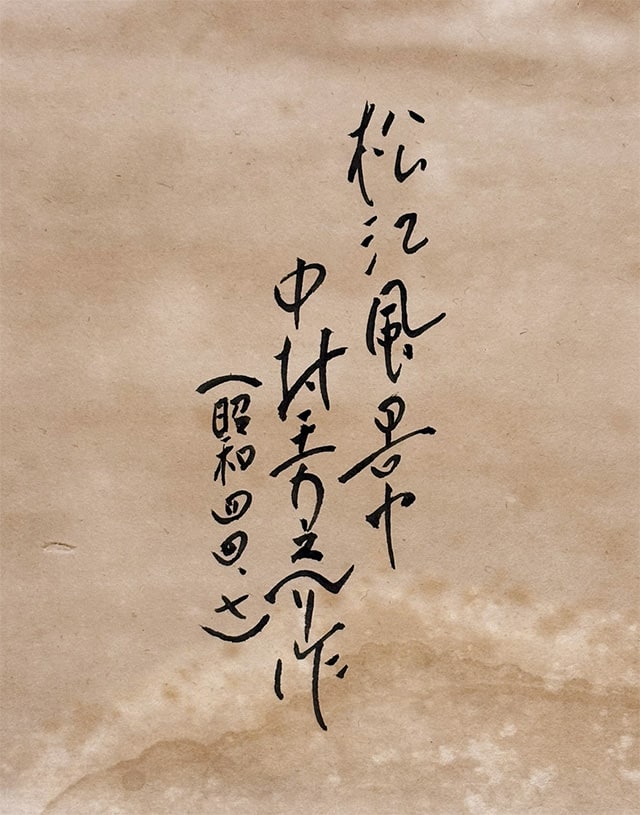 松江風景
中村之介作
(昭和四四、七)